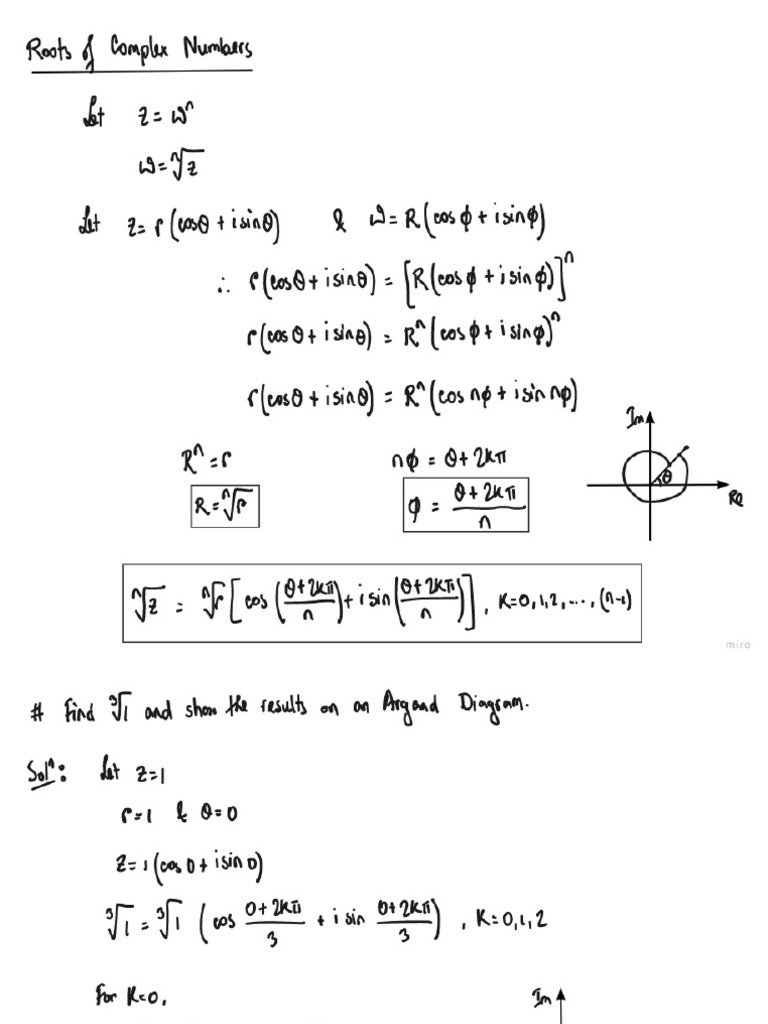 Roots of Complex Numbers
Let z = ωⁿ
ω = ⁿ√z
Let z = r(cosθ + i sinθ) & ω = R(cosϕ + i sinϕ)
∴ r(cosθ + i sinθ) = [R(cosϕ + i sinϕ)]ⁿ
r(cosθ + i sinθ) = Rⁿ(cosϕ + i sinϕ)ⁿ
r(cosθ + i sinθ) = Rⁿ(cos nϕ + i sin nϕ)
Im
Rⁿ = r nϕ = θ + 2kπ
θ
Re
R = ⁿ√r ϕ = (θ + 2kπ)/n
ⁿ√z = ⁿ√r [cos((θ + 2kπ)/n) + i sin((θ + 2kπ)/n)], K = 0, 1, 2, ..., (n-1)
miro
# Find ³√1 and show the results on an Argand Diagram.
Solⁿ: Let z = 1
r = 1 & θ = 0
z = 1(cos 0 + i sin 0)
³√1 = ³√1 (cos (0 + 2kπ)/3 + i sin (0 + 2kπ)/3), K = 0, 1, 2
For K = 0,
Im